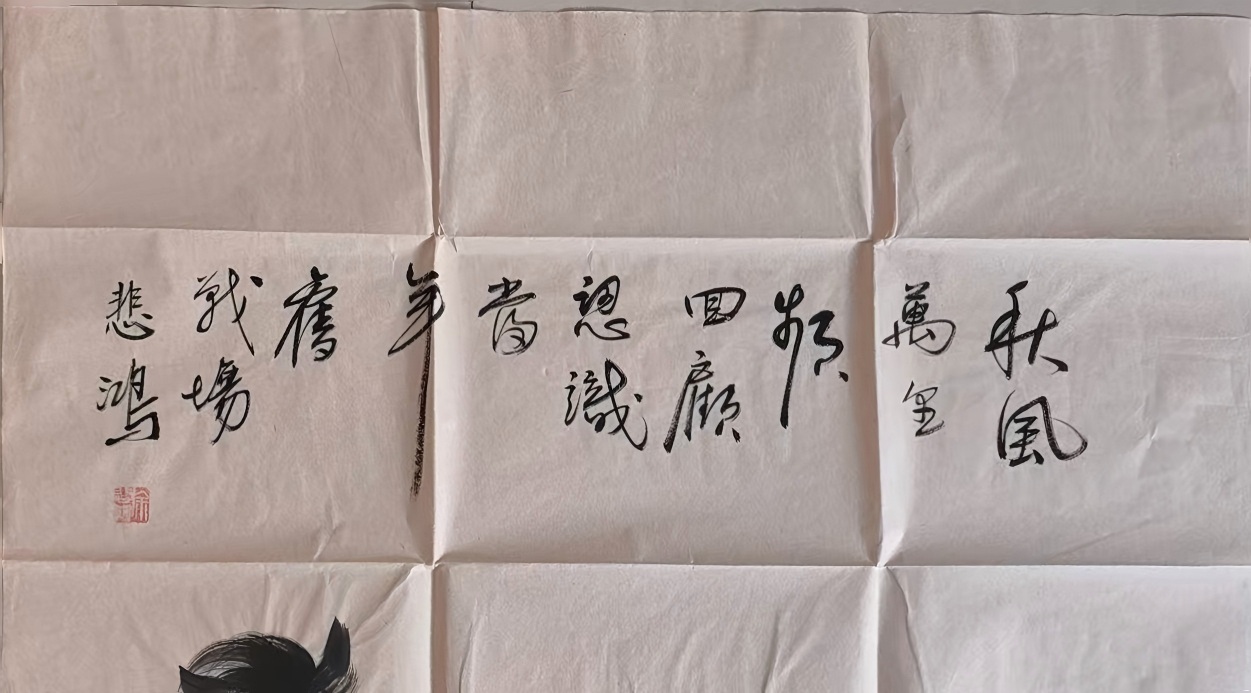 秋風
萬里
頻
回顧
認識
當
年
舊
戰場
悲鴻